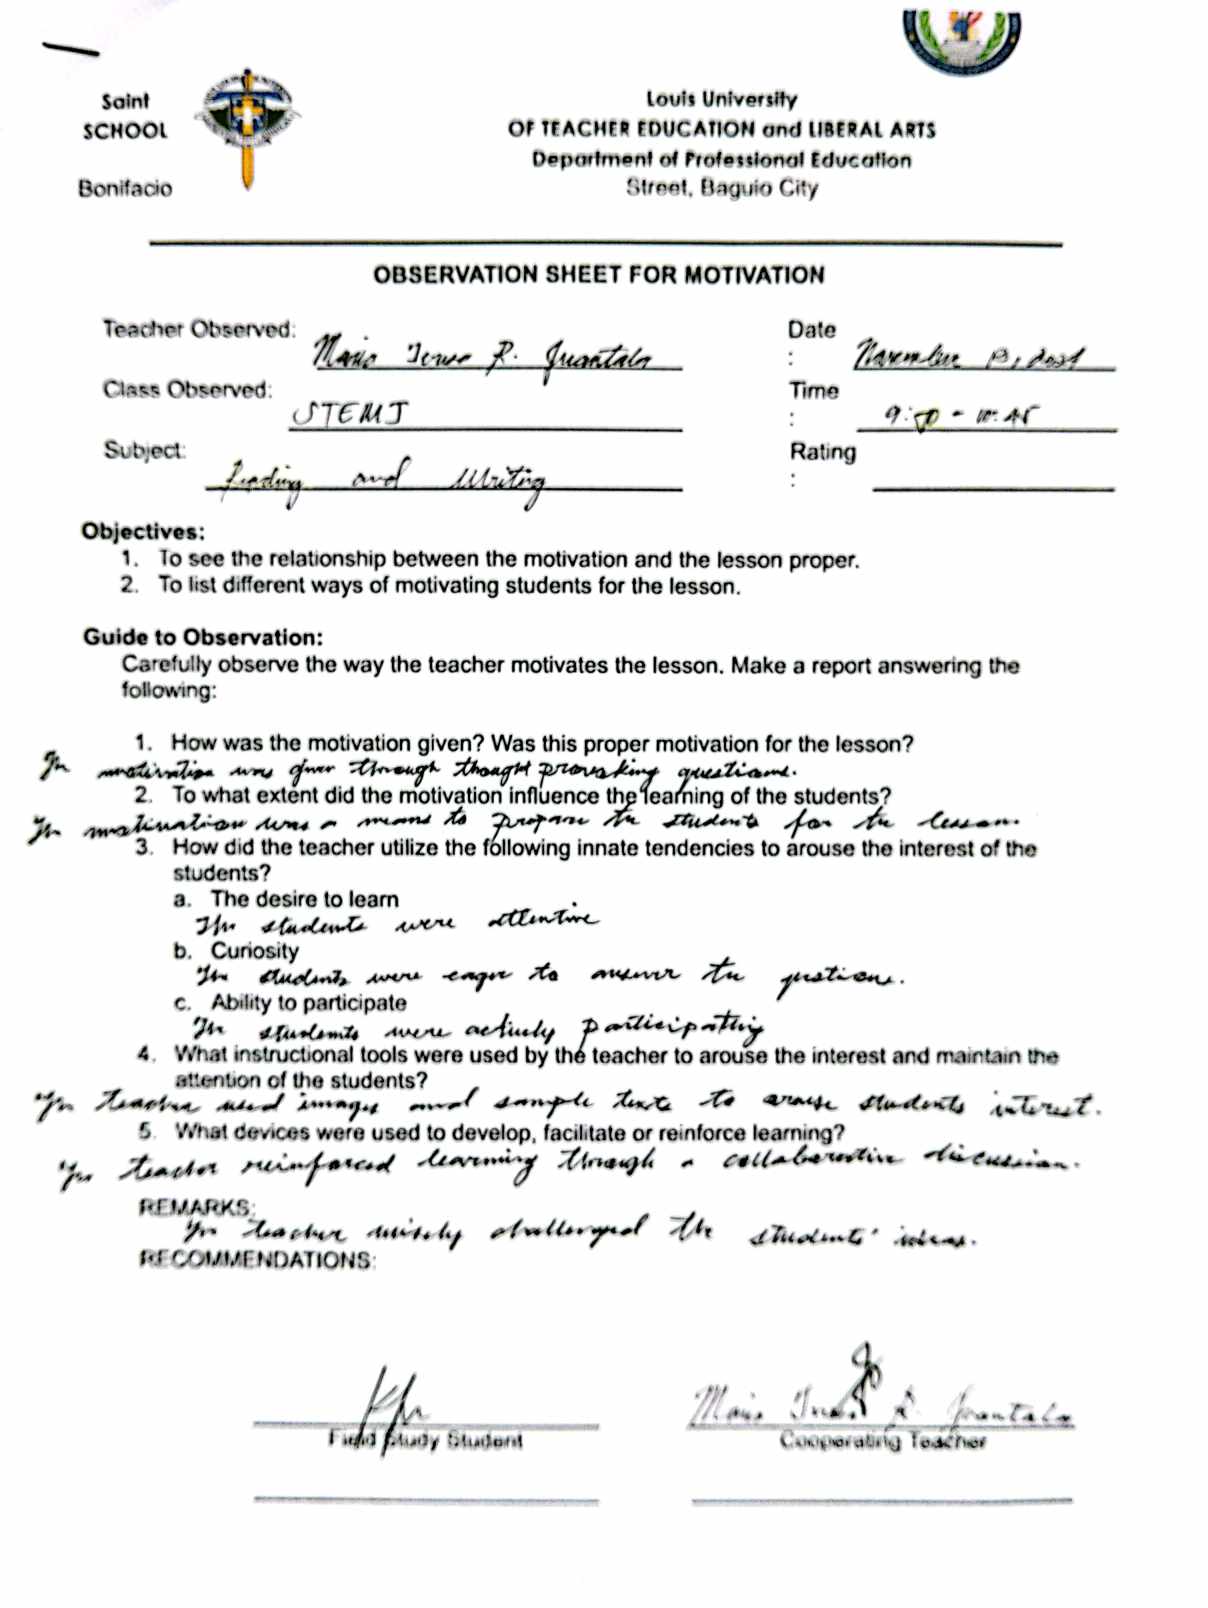 Saint Louis University
SCHOOL OF TEACHER EDUCATION and LIBERAL ARTS
Department of Professional Education
Bonifacio Street, Baguio City
OBSERVATION SHEET FOR MOTIVATION
Teacher Observed: Maria R.
Date : November
Class Observed: STEM
Time : 9: - 10:45
Subject: Reading and Writing
Rating :
Objectives:
1. To see the relationship between the motivation and the lesson proper.
2. To list different ways of motivating students for the lesson.
Guide to Observation:
Carefully observe the way the teacher motivates the lesson. Make a report answering the
following:
1. How was the motivation given? Was this proper motivation for the lesson?
The motivation was given through thought provoking questions.
2. To what extent did the motivation influence the learning of the students?
The motivation was a means to prepare the students for the lesson.
3. How did the teacher utilize the following innate tendencies to arouse the interest of the
students?
a. The desire to learn
The students were attentive
b. Curiosity
The students were eager to answer the questions.
c. Ability to participate
The students were actively participating
4. What instructional tools were used by the teacher to arouse the interest and maintain the
attention of the students?
The teacher used images and sample texts to arouse students interest.
5. What devices were used to develop, facilitate or reinforce learning?
The teacher reinforced learning through a collaborative discussion.
REMARKS:
The teacher wisely challenged the students' ideas.
RECOMMENDATIONS:
Maria R.
Field Study Student
Cooperating Teacher